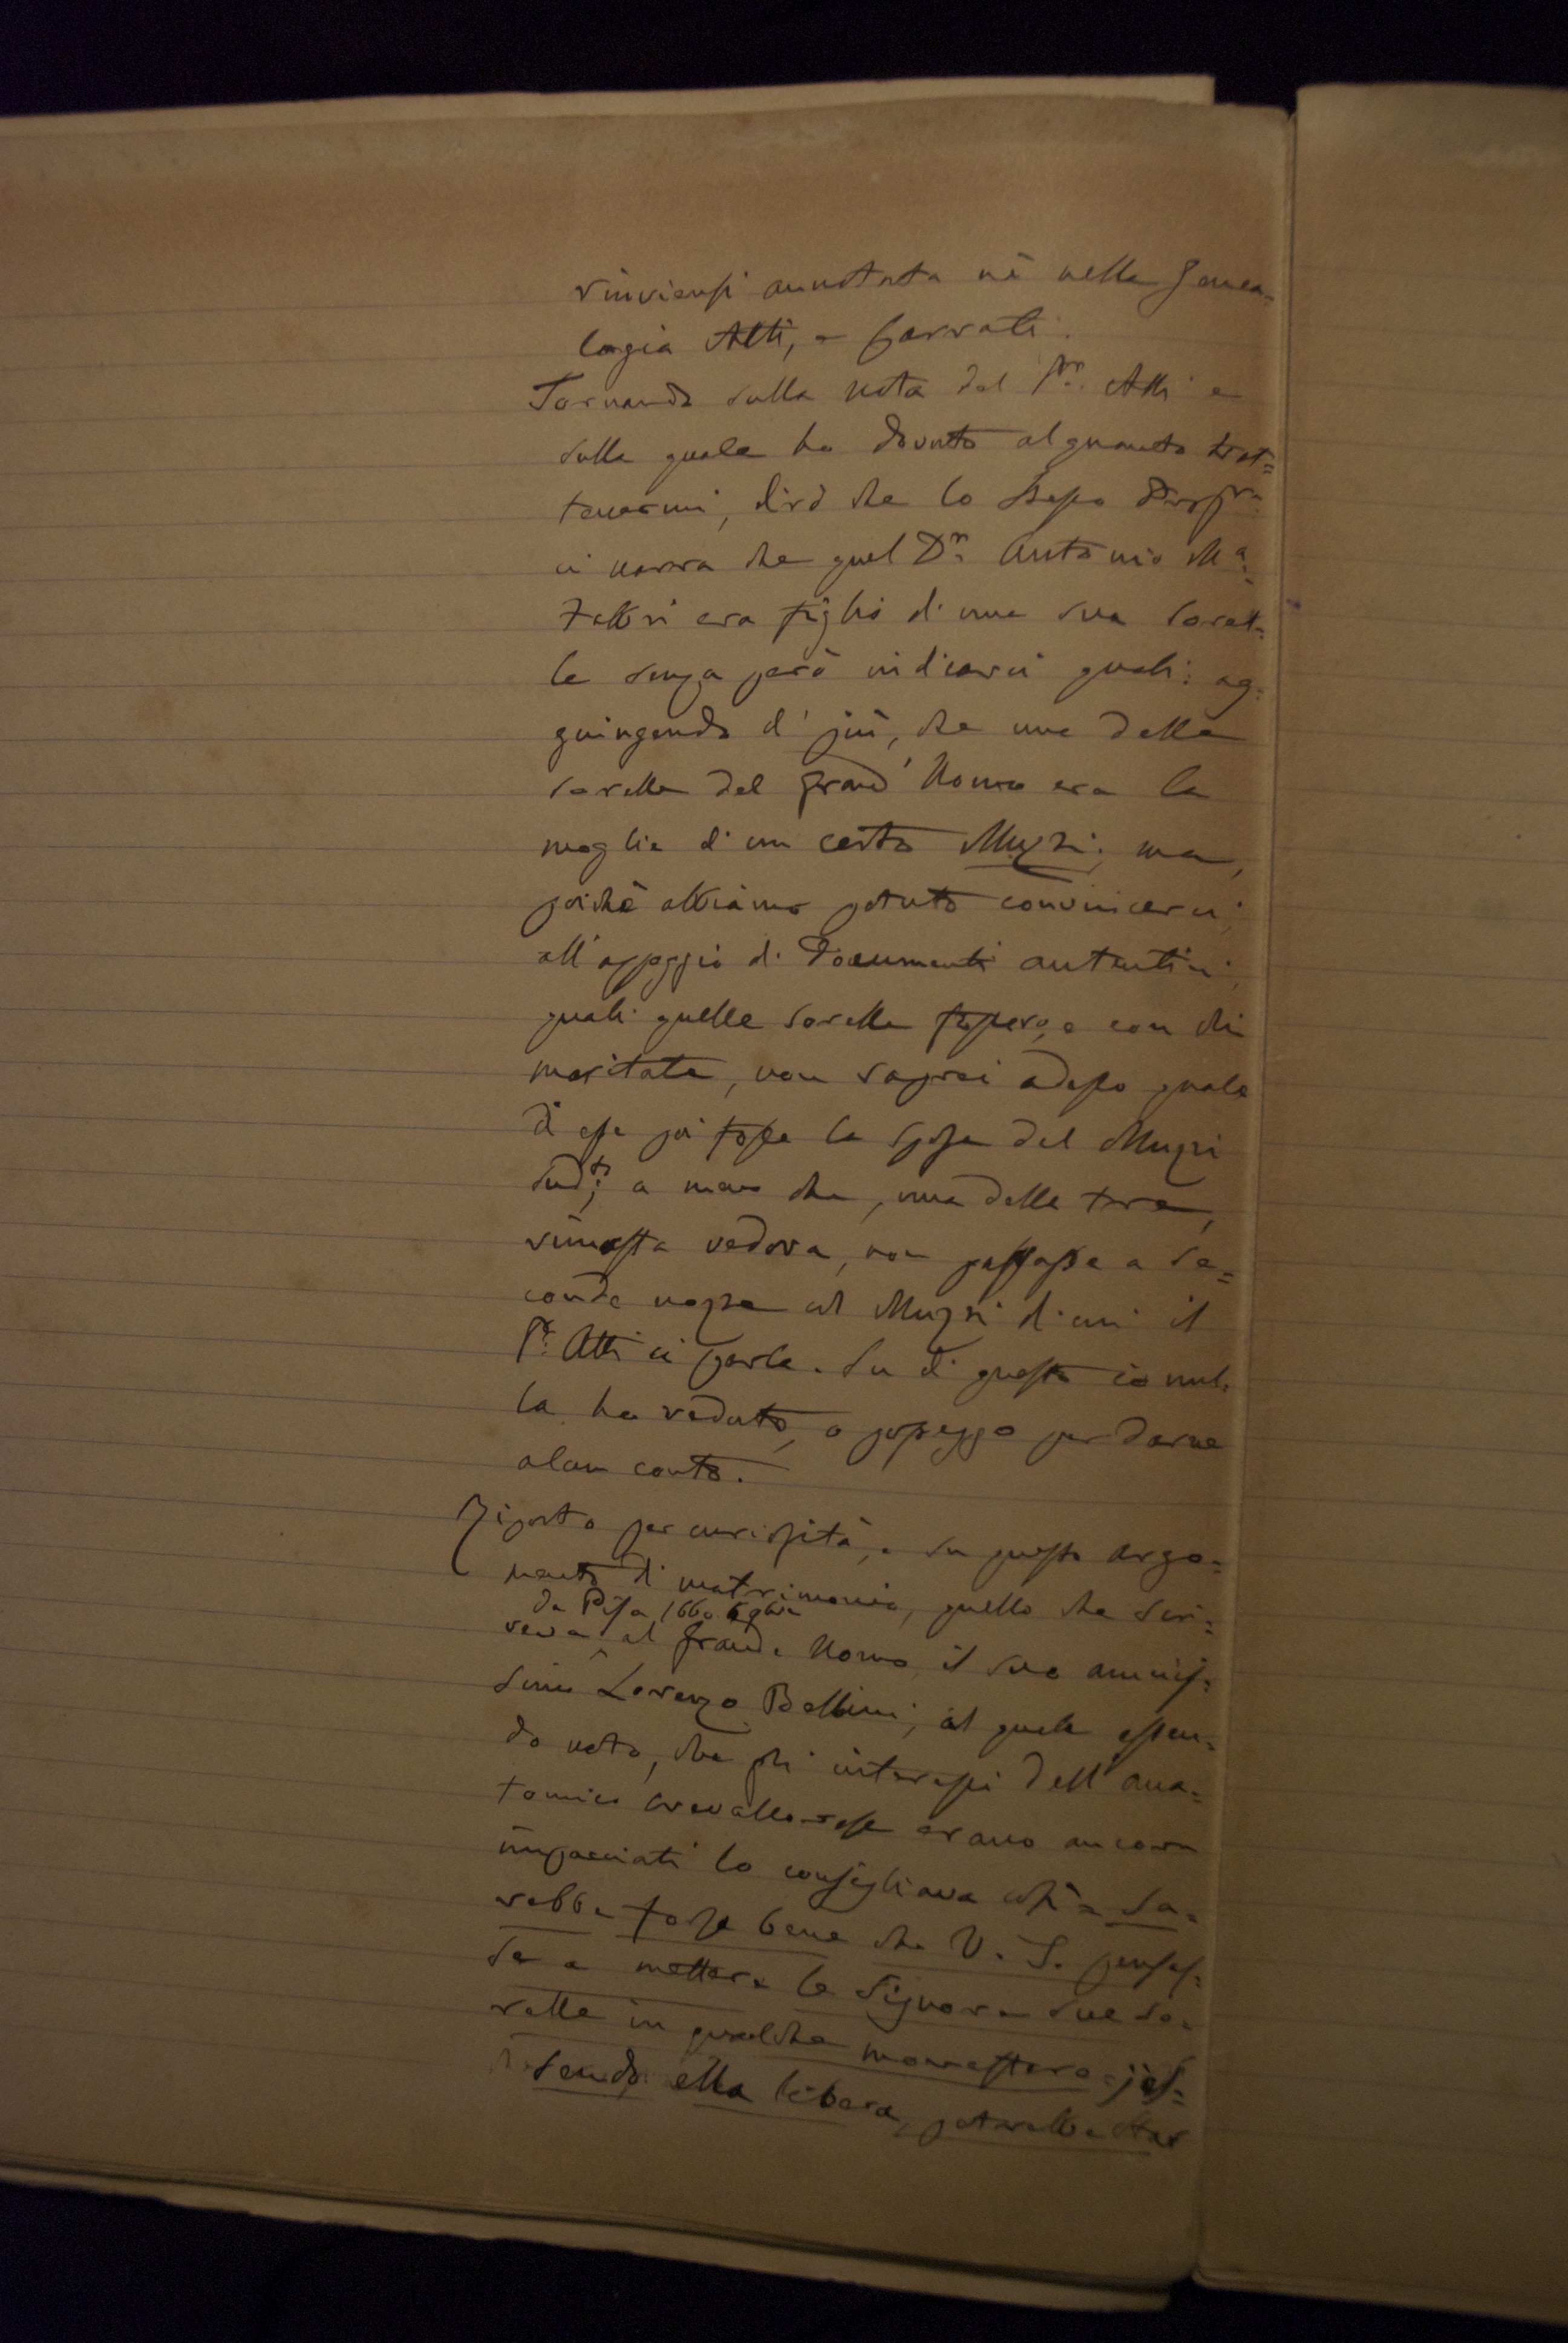 rinviensi annotata nè nella Genea-
logia Atti, e Carrati.
Tornando sulla nota del Pr. Atti e
sulla quale ho dovuto alquanto trat=
tenermi, dirò che lo stesso
ci narra che quel Dr. Antonio Ma.
Fabbri era figlio di una sua sorel=
le senza però indicarci quali: ag=
guingendo di più, che una delle
sorelle del grand'Uomo era la
moglie di un certo Muzzi; ma,
poichè abbiamo potuto convincerci,
all'appoggio di documenti autentici,
quali quelle sorelle fossero, e con chi
maritate, non saprei adesso quale
di esse poi fosse la sposa del Muzzi
sudto; a meno che, una delle tre,
rimasta vedova, non passasse a se=
conde nozze col Muzzi di cui il
Pr. Atti ci parla. Su di questo io nul=
la ho veduto, o posseggo per darne
alcun conto.
Riporto per curiosità, e su questo argo=
mento di matrimonio, quello che scri=
da Pisa 1660
veva al grande Uomo il suo amicis=
simo Lorenzo Bellini, al quale essen=
do noto, che gli interessi dell'ana=
tomico Crevalcorese erano ancora
impacciati lo consigliava così = Sa=
rebbe forse bene che V. S. pensas=
se a mettere le Signore sue so=
relle in qualche monastero; es=
sendo ella libera, potrebbe star